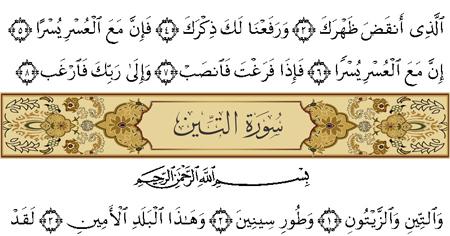 ٱلَّذِىٓ أَنقَضَ ظَهْرَكَ ﴿٣﴾ وَرَفَعْنَا لَكَ ذِكْرَكَ ﴿٤﴾ فَإِنَّ مَعَ ٱلْعُسْرِ يُسْرًا ﴿٥﴾
إِنَّ مَعَ ٱلْعُسْرِ يُسْرًا ﴿٦﴾ فَإِذَا فَرَغْتَ فَٱنصَبْ ﴿٧﴾ وَإِلَىٰ رَبِّكَ فَٱرْغَب ﴿٨﴾
سُورَةُ التِّينِ
بِسْمِ ٱللَّهِ ٱلرَّحْمَٰنِ ٱلرَّحِيمِ
وَٱلتِّينِ وَٱلزَّيْتُونِ ﴿١﴾ وَطُورِ سِينِينَ ﴿٢﴾ وَهَٰذَا ٱلْبَلَدِ ٱلْأَمِينِ ﴿٣﴾ لَقَدْ